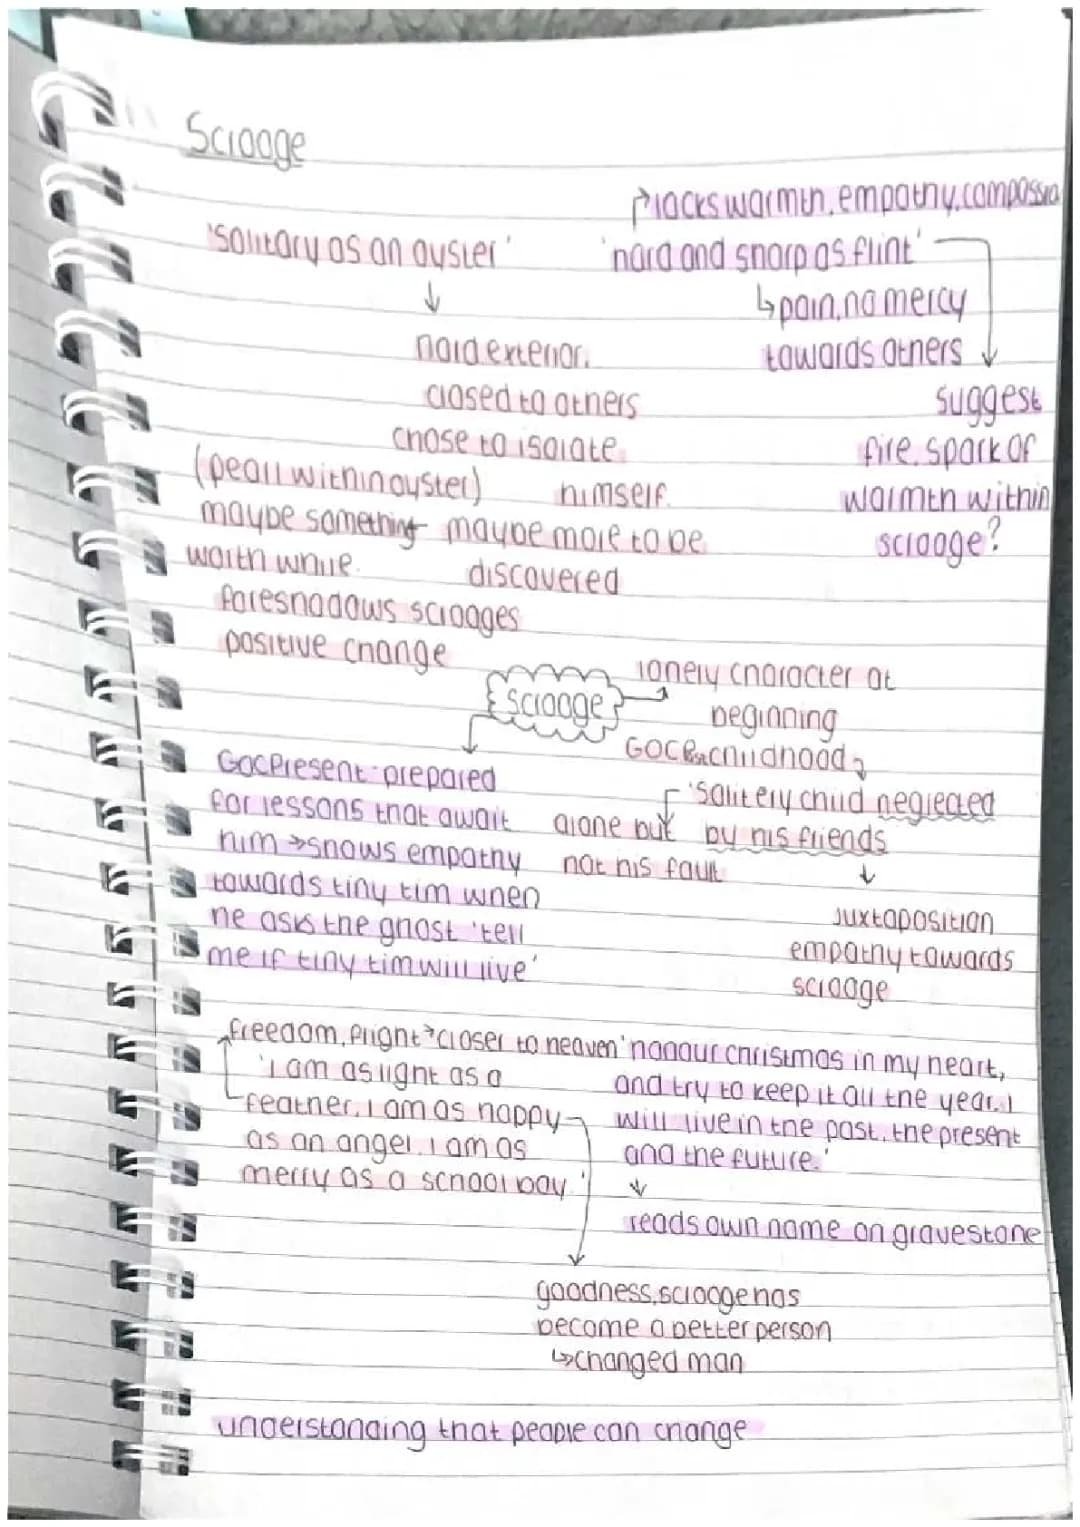 Scrooge
lacks warmth, empathy, compassio
'solitary as an oyster'
'hard and sharp as flint'
↓
↳pain, no mercy
towards others
hard exterior.
closed to others
chose to isolate
himself.
suggest
fire, spark of
warmth within
scrooge?
(pearl within oyster)
maybe something
worth while.
maybe more to be
discovered
foreshadows scrooges
positive change
Scrooge
lonely character at
beginning
GOC Childhood
'solitery child neglected
by his friends
alone but
not his fault
↓
juxtaposition
empathy towards
scrooge
GocPresent-prepared
for lessons that await
him → shows empathy
towards tiny tim when
he asks the ghost 'tell
me if tiny tim will live'
freedom, flight → closer to heaven
'I am as light as a
feather, I am as happy
as an angel. I am as
merry as a school boy.'
'honour christmas in my heart,
and try to keep it all the year. I
will live in the past, the present
and the future.'
↓
reads own name on gravestone
goodness, scrooge has
become a better person
↳changed man
understanding that people can change